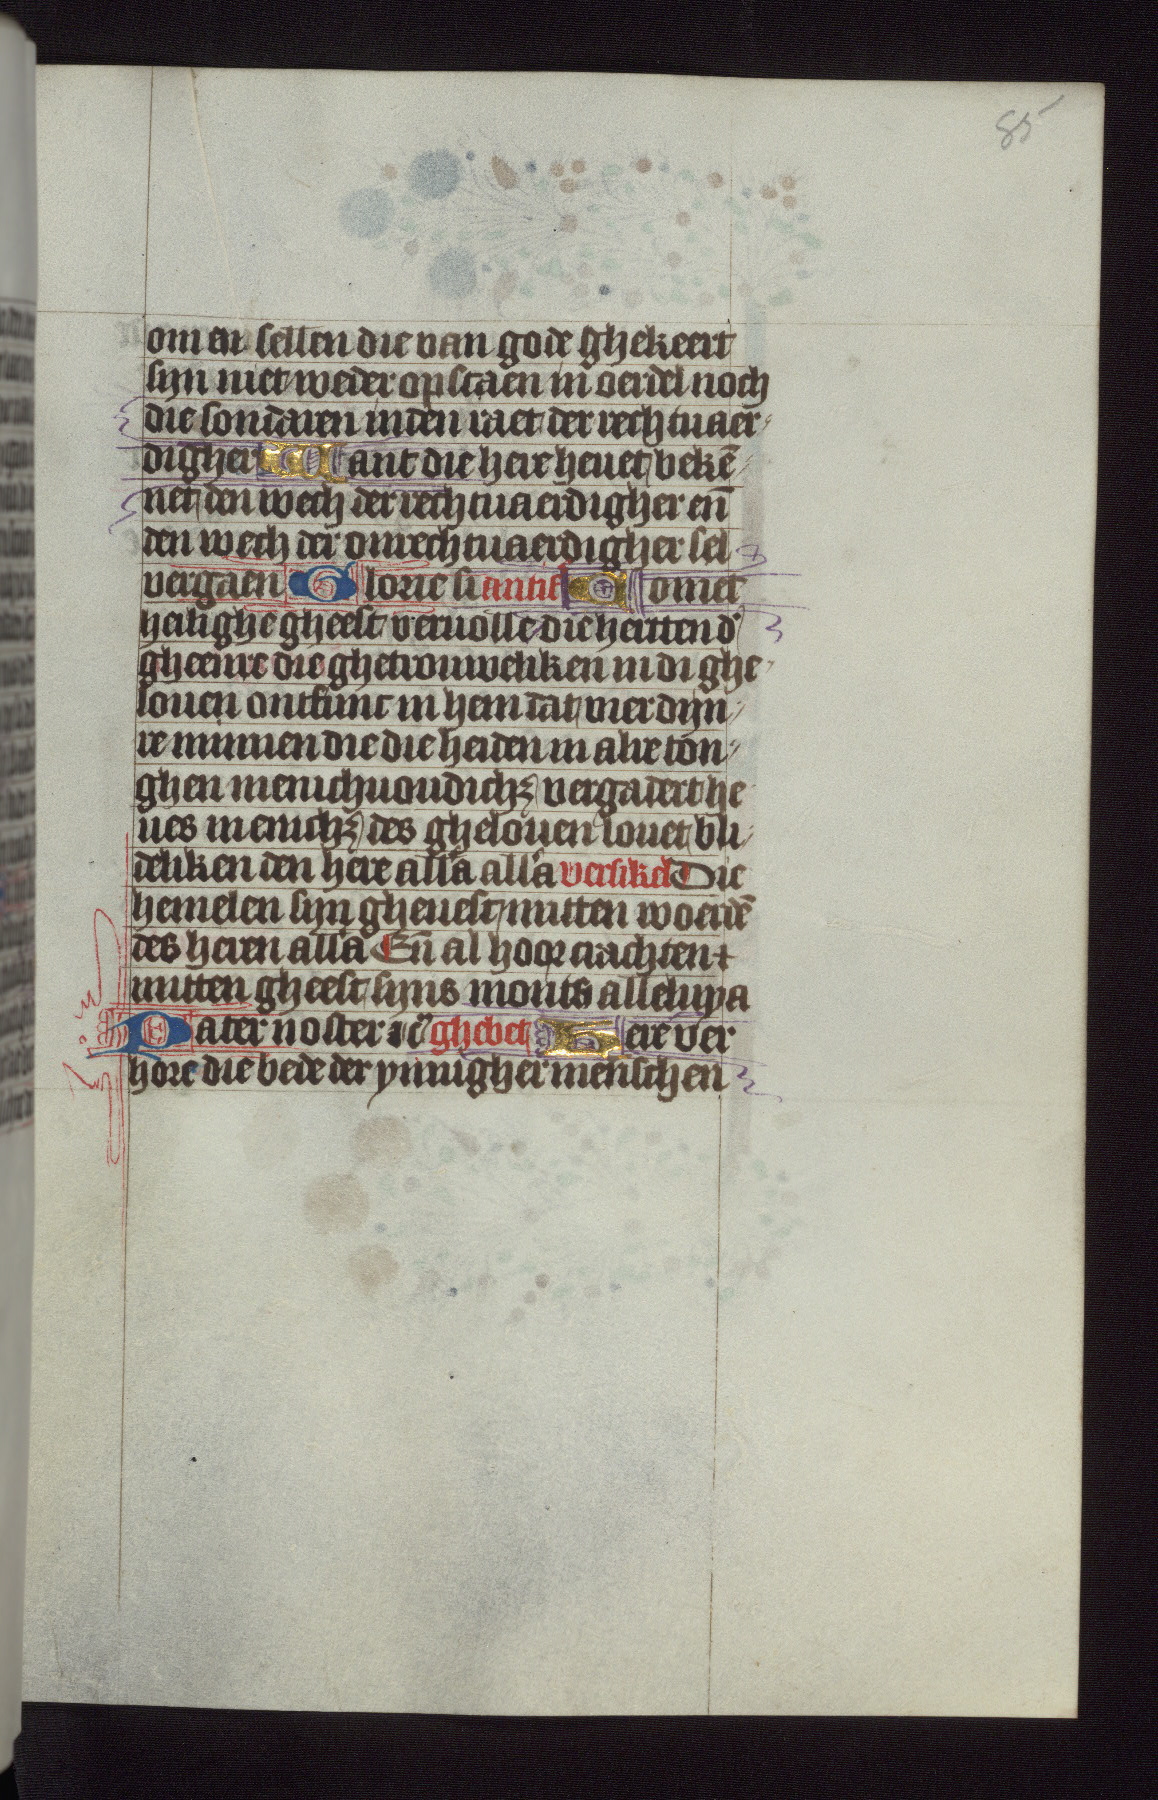 85
om at sellen die van gode ghekeert
sijn niet weder opstaen in oerdel noch
die sondaren inden raet der rechtuaer
digher Want die here heuet bekē
net den wech der rechtuaerdigher eñ
den wech der onrechtuaerdigher sel
vergaen Glorie si antif Comet
heilighe gheest veruolle die hertten d'
gheenre die ghetrouweliken in di ghe
louen ontfunc in hem dat vier dijn
re minnen die die heiden in alre ton
ghen menichuoudichz vergadert he
ues in enichz des ghelouen louet bli
deliken den here all'a all'a versikel Die
hemelen sijn gheuest mitten woerdē
des heren all'a Eñ al hoor crachten
mitten gheest sijns monts alleluya
Pater noster ic ghebet Here ver
hore die bede der ynnigher menschen